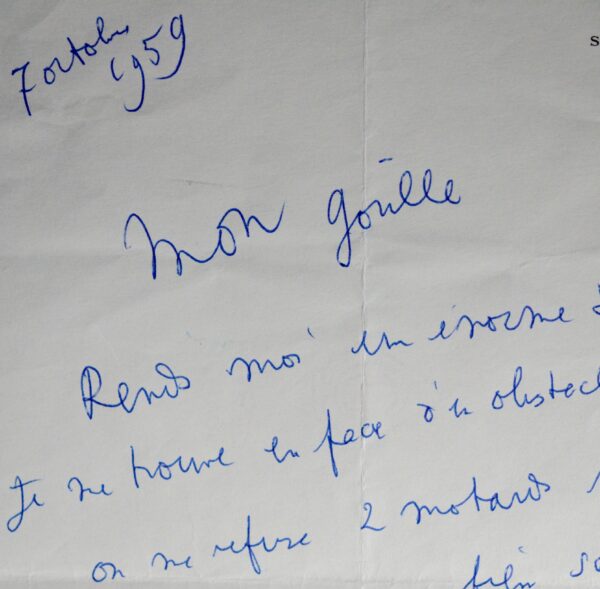 7 octobre
1959
S
Mon goulle
Rends moi un énorme
Je me trouve en face d'un obstacl
on me refuse 2 motards
bien so